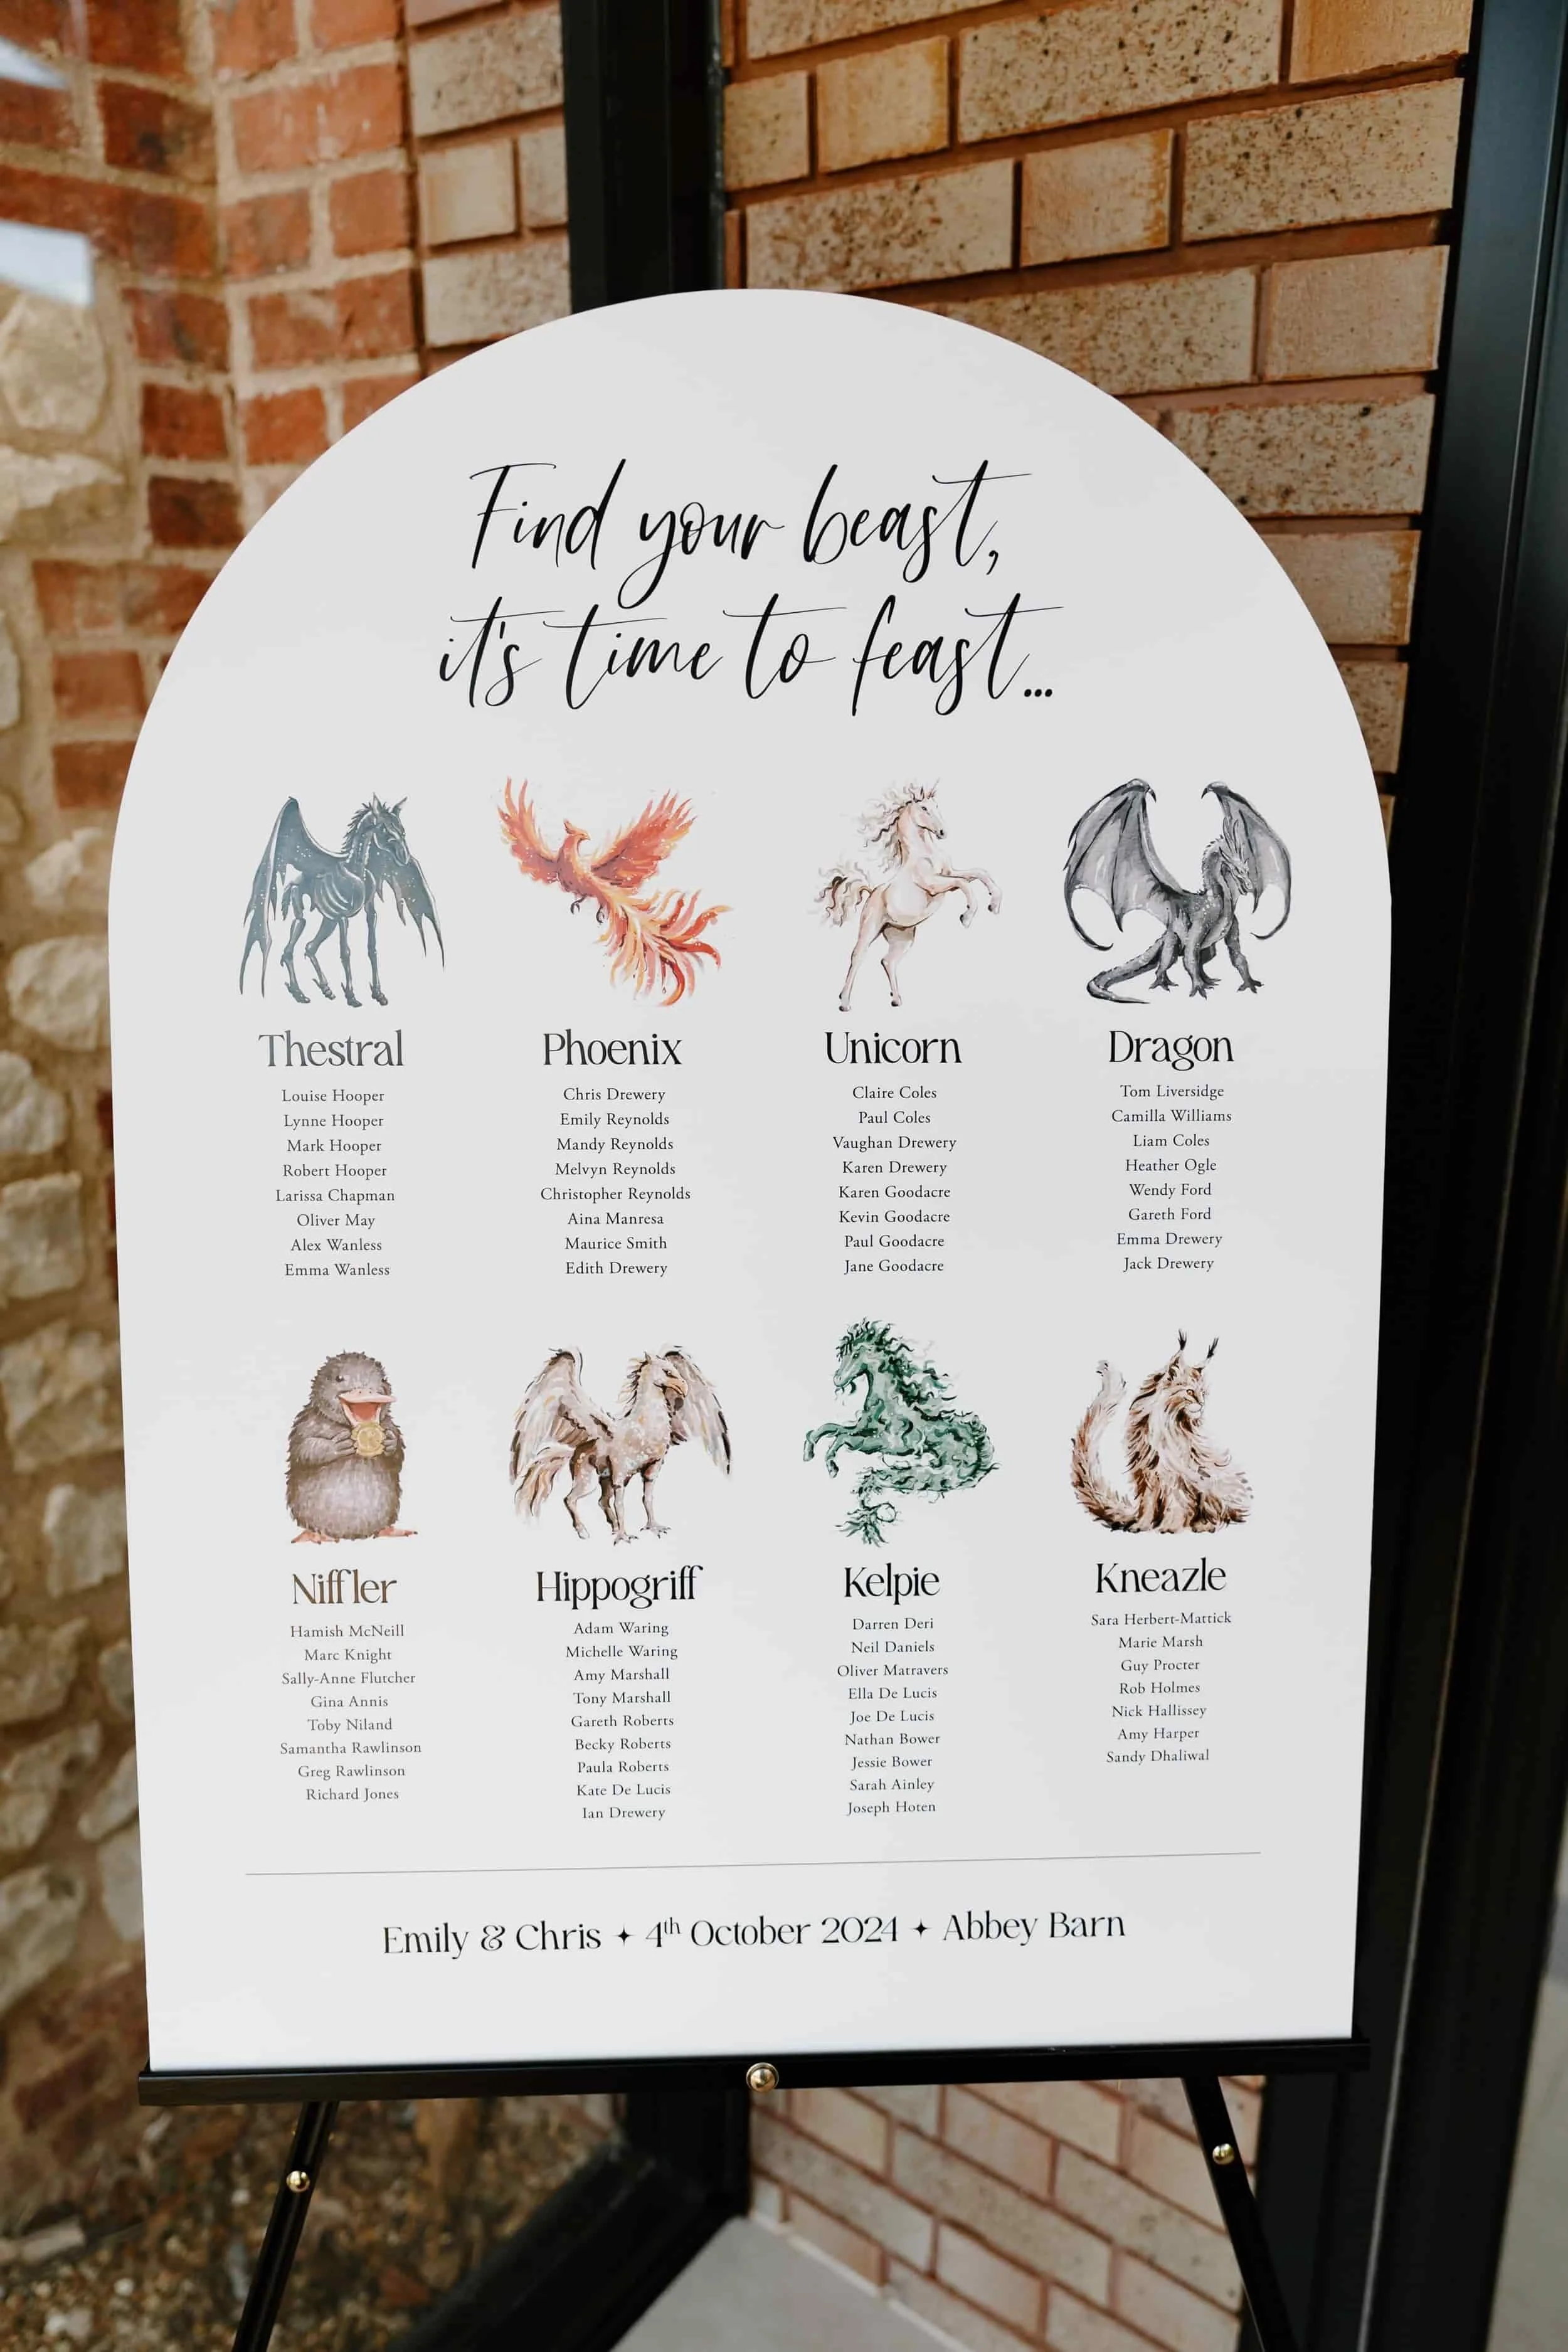 Find your beast,
it's time to feast...
Thestral
Louise Hooper
Lynne Hooper
Mark Hooper
Robert Hooper
Larissa Chapman
Oliver May
Alex Wanless
Emma Wanless
Phoenix
Chris Drewery
Emily Reynolds
Mandy Reynolds
Melvyn Reynolds
Christopher Reynolds
Aina Manresa
Maurice Smith
Edith Drewery
Unicorn
Claire Coles
Paul Coles
Vaughan Drewery
Karen Drewery
Karen Goodacre
Kevin Goodacre
Paul Goodacre
Jane Goodacre
Dragon
Tom Liversidge
Camilla Williams
Liam Coles
Heather Ogle
Wendy Ford
Gareth Ford
Emma Drewery
Jack Drewery
Niffler
Hamish McNeill
Marc Knight
Sally-Anne Flutcher
Gina Annis
Toby Niland
Samantha Rawlinson
Greg Rawlinson
Richard Jones
Hippogriff
Adam Waring
Michelle Waring
Amy Marshall
Tony Marshall
Gareth Roberts
Becky Roberts
Paula Roberts
Kate De Lucis
Ian Drewery
Kelpie
Darren Deri
Neil Daniels
Oliver Matravers
Ella De Lucis
Joe De Lucis
Nathan Bower
Jessie Bower
Sarah Ainley
Joseph Hoten
Kneazle
Sara Herbert-Mattick
Marie Marsh
Guy Procter
Rob Holmes
Nick Hallissey
Amy Harper
Sandy Dhaliwal
Emily & Chris ✦ 4th October 2024 ✦ Abbey Barn